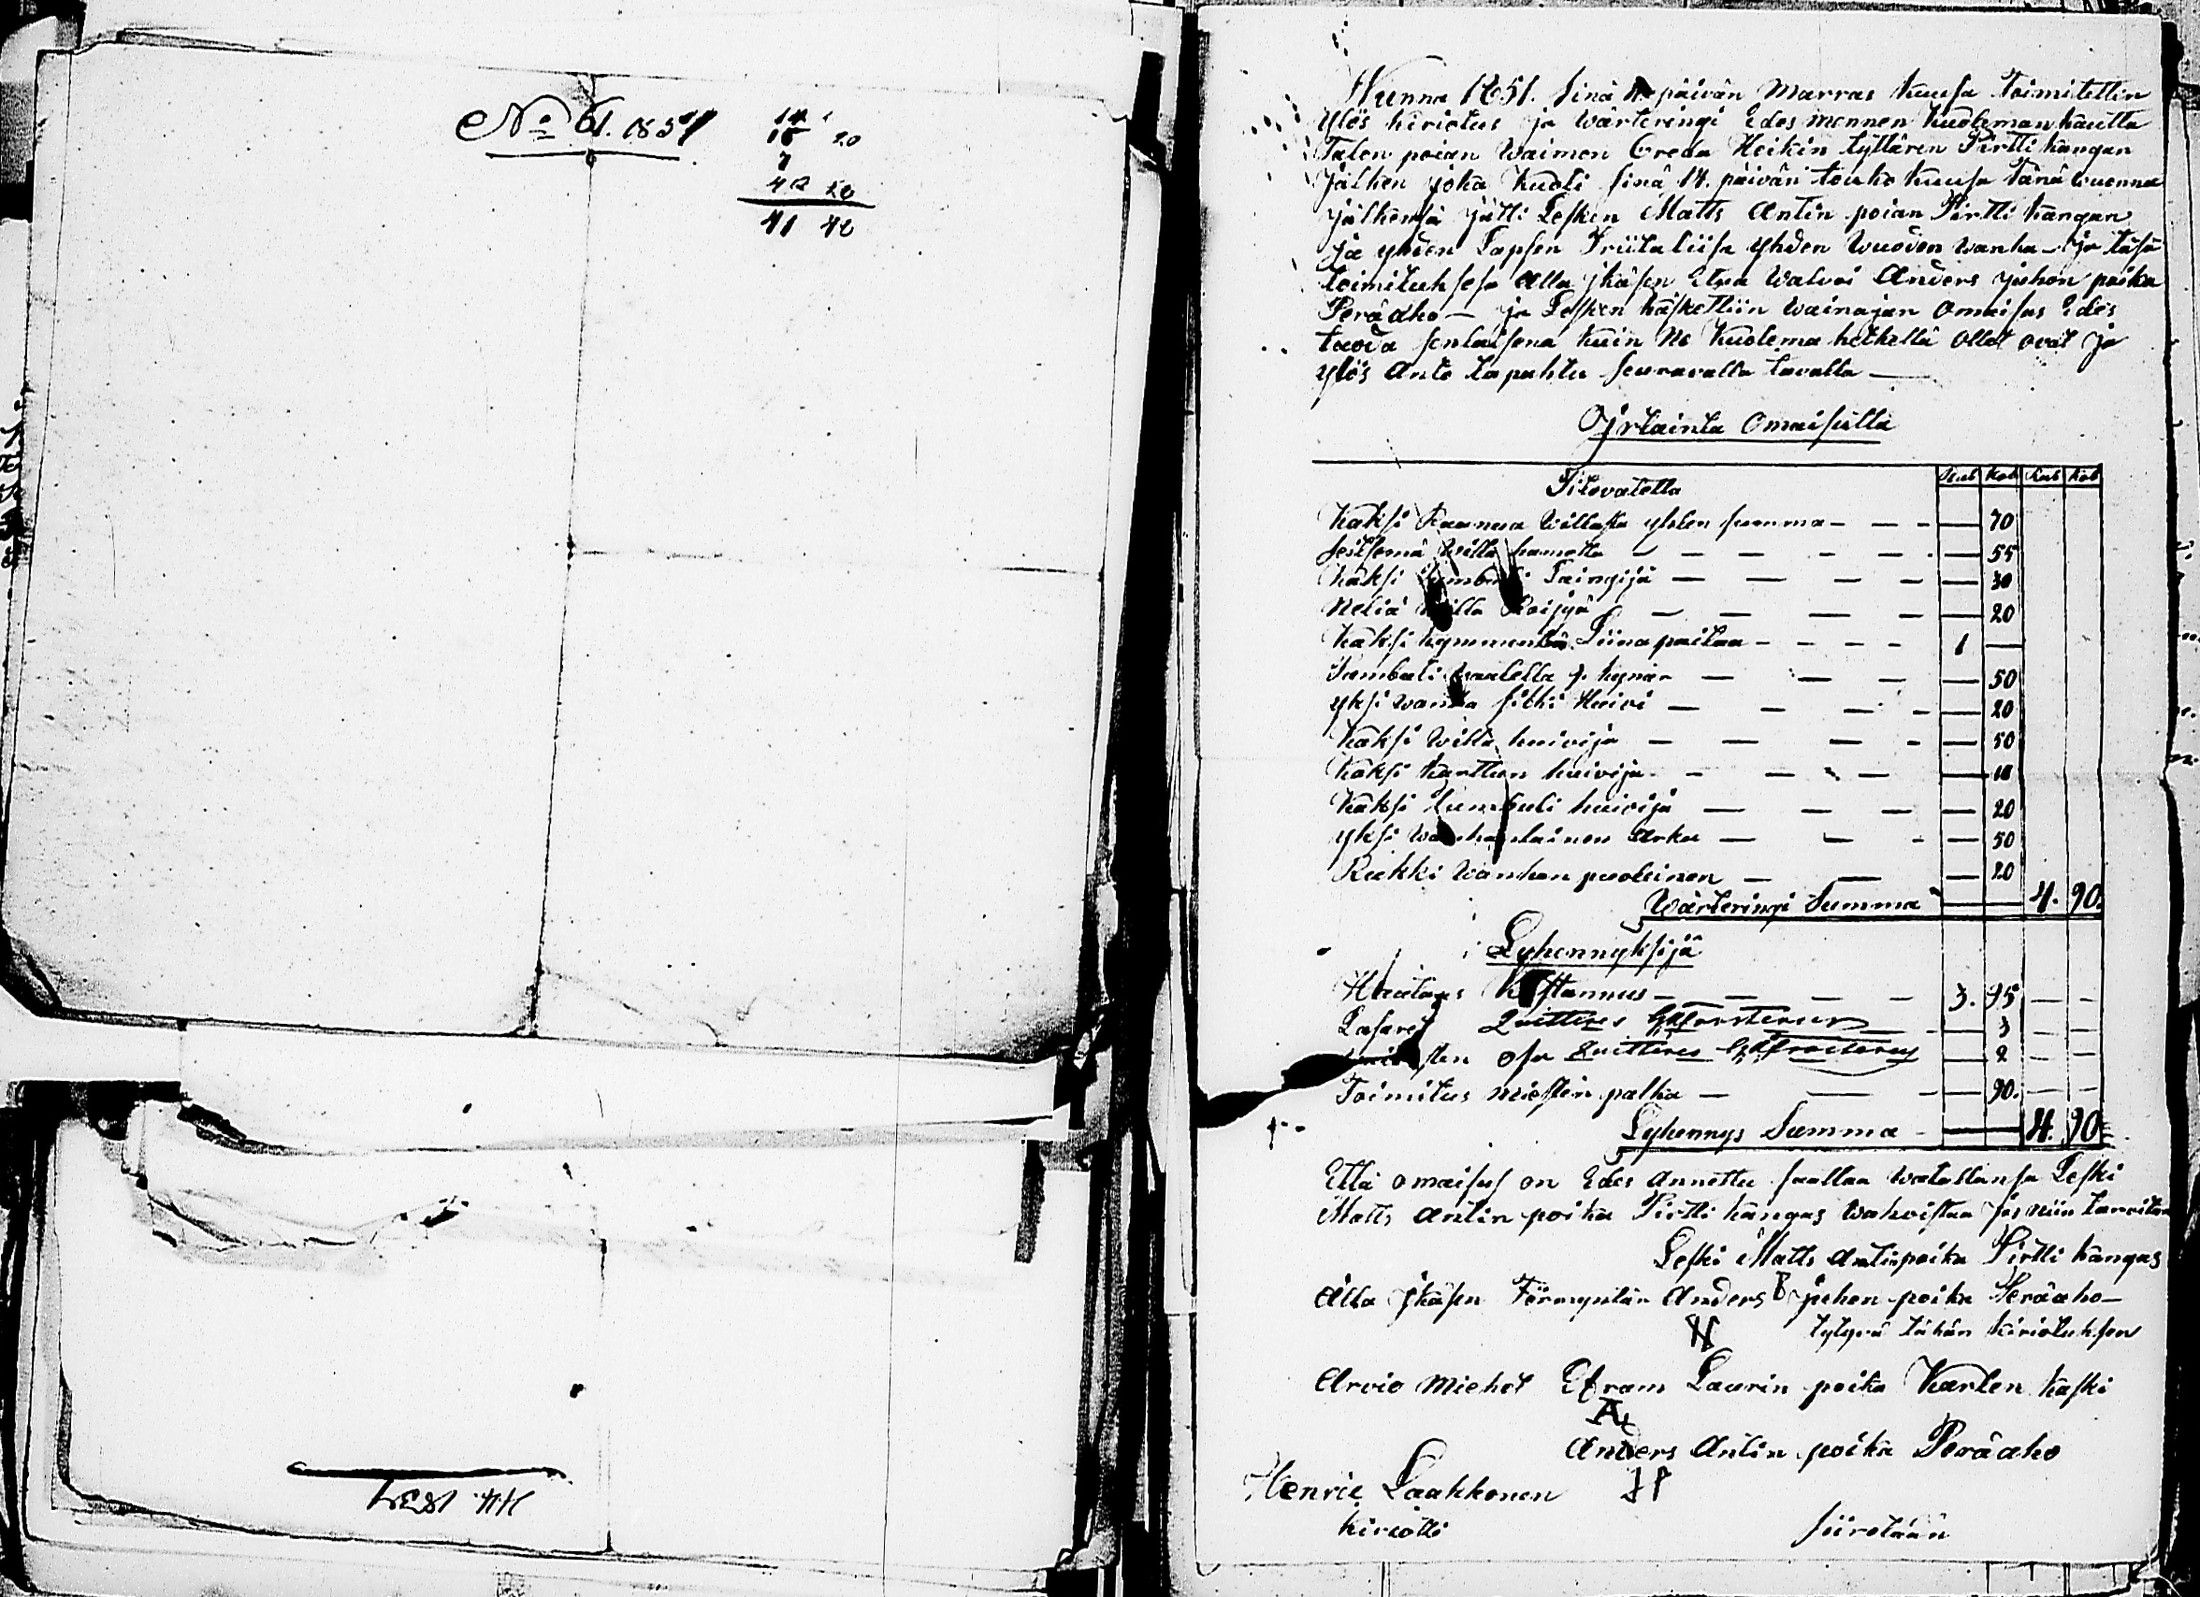 No 61. 1851
18 20
7
41 40
Wunna 1851. sinä päivän Marras kuusa toimitettin
ylös kiriotus ja Wärteringi Edes mennen kuoleman kautta
Talon poian Waimon Greda Heikin tyttären Pirtti kangan
jälken joka kuoli sinä 14. päivän touko kuusa tänä wuonna
jälkensä jätti Lesken Matts Antin poian Pirtti kangan
ja yhden Lapsen Friita liisa yhden Wuoden wanha - ja täsä
toimituksesa alla jkäsen Etua Walvoi Anders juhon poika
Peräaho - ja Lesken käskettiin wainajan Omaisus Edes
tuoda senlaisena kuin Ne kuolema hetkellä ollet ovat ja
ylös Anto tapahtu seuravalla tavalla
Jrtainta Omaisutta
Rub Kob Rub Kob
Pitovatetta
Kaksi Willasta yhten summa - - - 70
seitsemä Willa hametta - - - 55
Kaksi Tambuli Taingijä - - - 30
Neliä Willa Roijyä - - - 20
Kaksi kymmentä Liinapaitaa - - - 1 -
Tambuli waatetta 9. kynär - - - 50
yksi wanha silki Huivi - - - 20
Kaksi Willa huivija - - - 50
Kaksi karttun huivija - - -
Kaksi tumbuli huivija - - - 20
yksi wanhanlainen Arku - - - 50
Rukki Wanhan puoleinen - - 20
Wärteringi Summa - 4. 90.
Lyhennyksijä
Hautaus Kostannus - - - 3. 95 - -
Lasaret Quitteras - 3 - -
osa Quitteras - 2 - -
Toimitus miesten palka - - - 90. - -
Lyhennys Summa - 4. 90
Että omaisus on Edes Annettu saallaa watallansa Leski
Matts Antin poika Pirtti kangas Wahvistaa jos niin tarvitan
Leski Matts Antinpoika Pirtti kangas
Alla jkäsen Förmyntär Anders juhon poika Peräaho -
tytyvä tähän kiriotuksen
Arvio Miehet Efram Laurin poika Karten kaski
Anders Antin poika Peräaho
Henric Laakkonen
kirioitti
siirotään